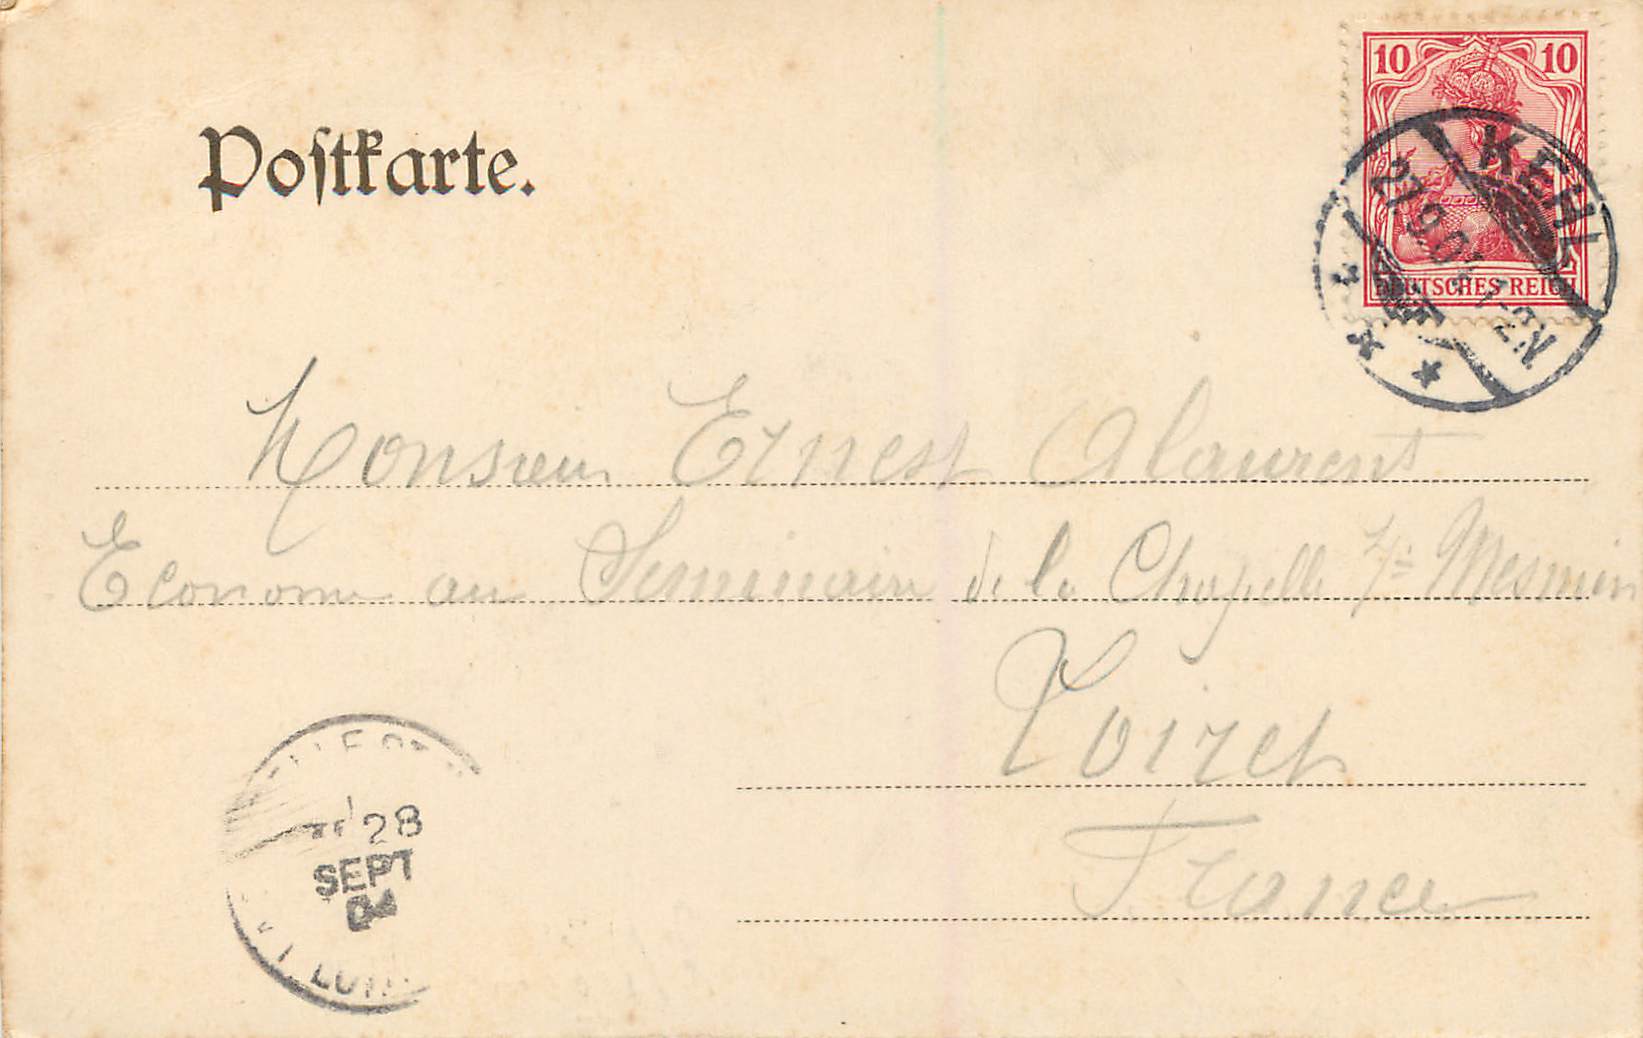 10 10
DEUTSCHES REICH
KEHL
27.9.04 1-2N
* *
Postkarte.
Monsieur Ernest
Econome au Seminaire de la Chapelle St Mesmin
Loiret
France
28
SEPT
04